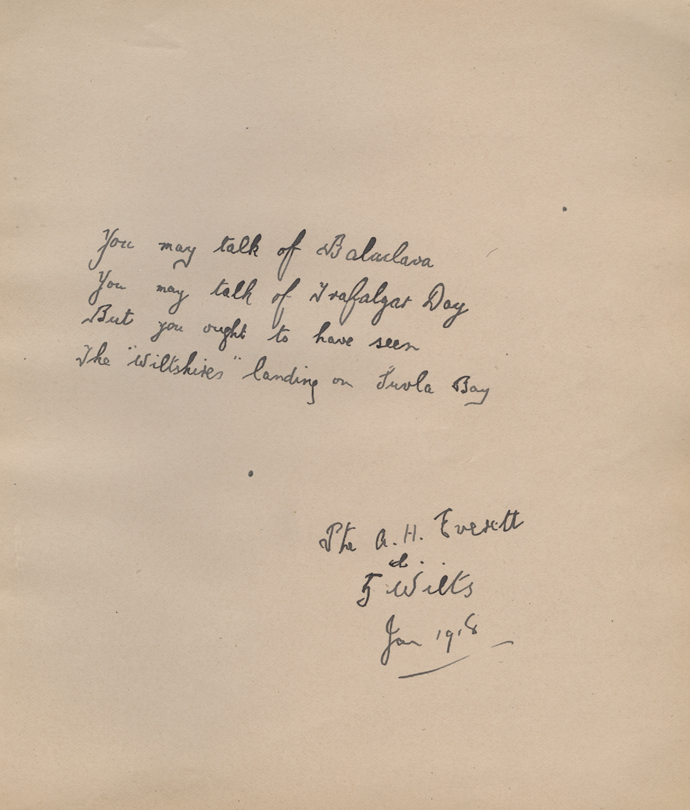 You may talk of Balaclava
You may talk of Trafalgar Day
But you ought to have seen
The "Wiltshires" landing on Suvla Bay
Pte A. H. Everett
5 Wilts
Jan 1918